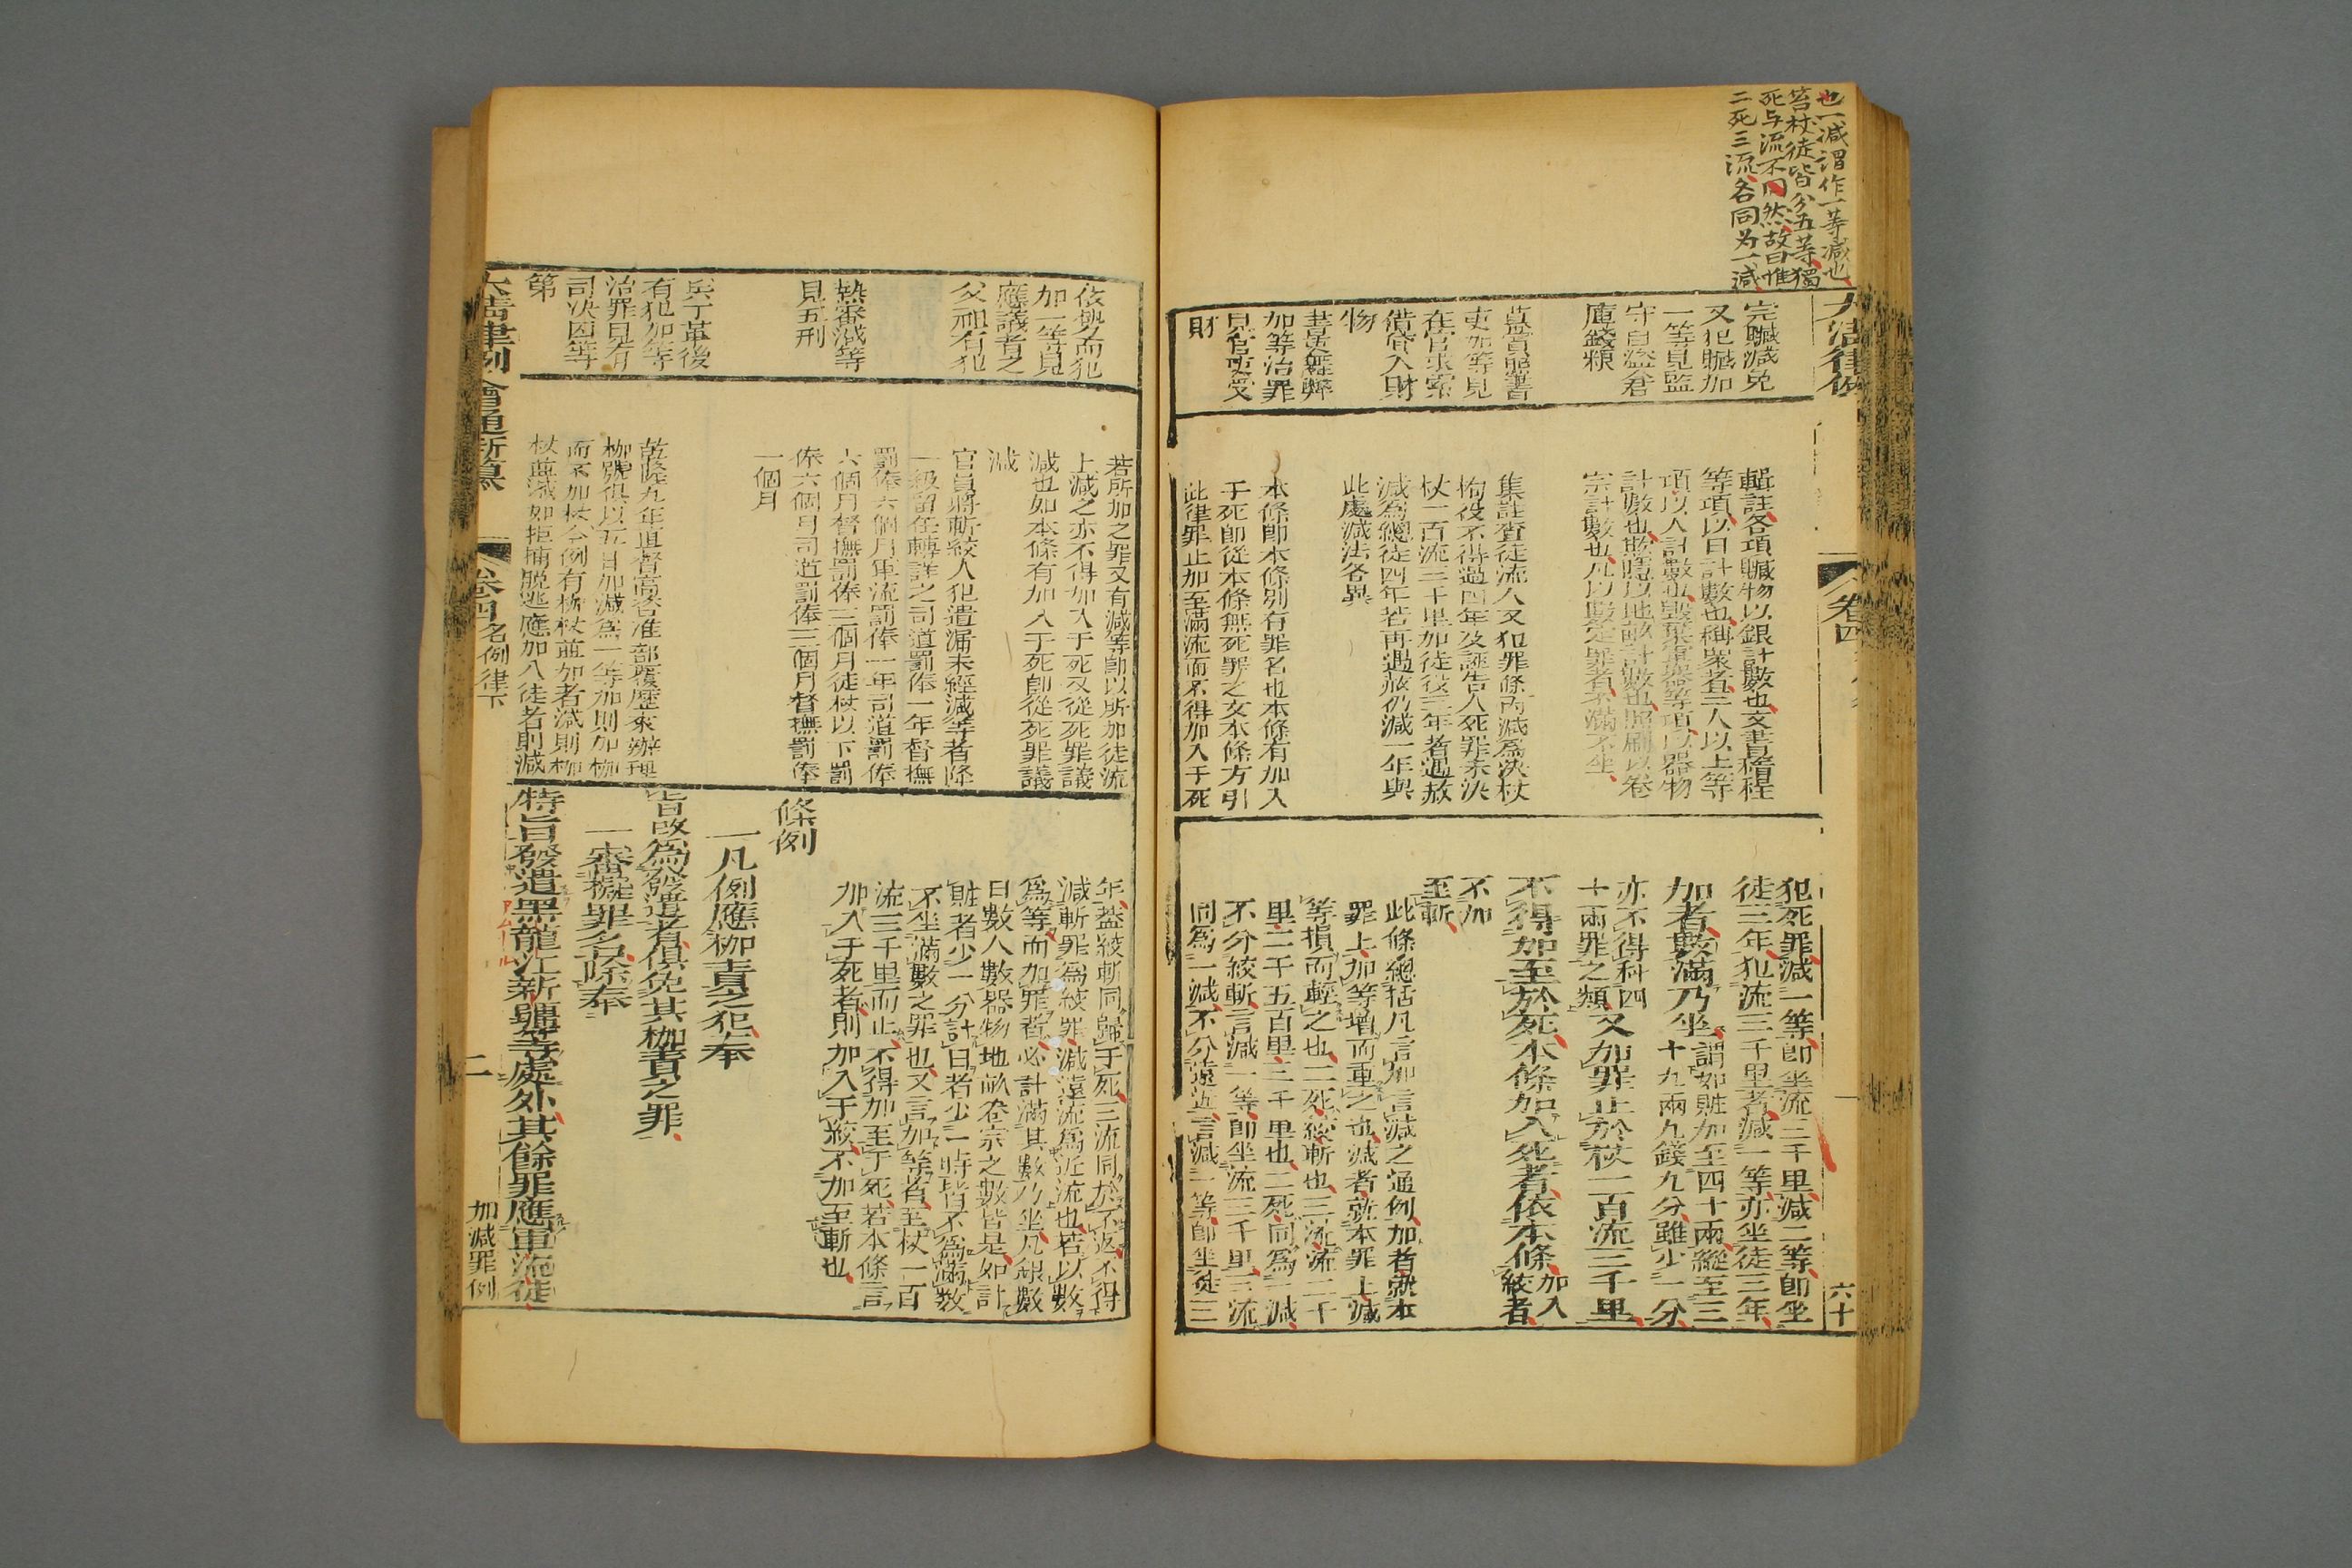 也一減謂作一等減也
笞杖徒皆分五等獨
死与流不同然故曰惟
二死三流各同为一減
大清律例
卷四
六十
完贓減免
又犯贓加
一等見監
守自盜倉
庫錢糧
吏加等見
在官求索
借貸人財
物
書吏舞弊
加等治罪
見官吏受
財
輯註各項贓物以銀計數也文書稽程
等項以日計數也稱眾者三人以上等
項以人計數也毀棄軍器等項以器物
計數也欺隱以地畝計數也照刷以卷
宗計數也凡以數定罪者不滿不坐
集註查徒流人又犯罪條內減為決杖
拘役不得過四年及誣告人死罪未決
杖一百流三千里加徒役三年者遇赦
減為總徒四年若再遇赦仍減一年與
此處減法各異
本條即本條別有罪名也本條有加入
于死即從本條無死罪之文本條方引
此律罪止加至滿流而不得加入于死
犯死罪減一等即坐流三千里減二等即坐
徒三年犯流三千里者減一等亦坐徒三年
加者數滿乃坐謂如贓加至四十兩縱至三
十九兩九錢九分雖少一分
亦不得科四
十兩罪之類又加罪止於杖一百流三千里
不得加至於死本條加入死者依本條加入
絞者
不加
至斬
此條總括凡言加言減之通例加者就本
罪上加等增而重之也減者就本罪上減
等損而輕之也二死絞斬也三流流二千
里二千五百里三千里也二死同為一減
不分絞斬言減一等即坐流三千里三流
同為一減不分遠近言減一等即坐徒三
依與名而犯
加一等見
應議者之
父祖有犯
熱審減等
見五刑
兵丁革後
有犯加等
治罪見有
司決囚等
第
若所加之罪又有減等即以所加徒流
上減之亦不得加入于死又從死罪議
減也如本條有加入于死即從死罪議
減
官員將斬絞人犯遺漏未經減等者降
一級留任轉詳之司道罰俸一年督撫
罰俸六個月軍流罰俸一年司道罰俸
六個月督撫罰俸三個月徒杖以下罰
俸六個月司道罰俸三個月督撫罰俸
一個月
乾隆九年直督高咨准部覆歷來辦理
枷號俱以五日加減為一等加則加枷
而不加杖今例有枷杖並加者減則枷
杖並減如拒捕脫逃應加入徒者則減
年蓋絞斬同歸于死三流同於不返不得
減斬罪為絞罪減遠流為近流也若以數
為等而加罪者必計滿其數乃坐凡銀數
日數人數器物地畝卷宗之數皆是如計
贓者少一分計日者少一時皆不為滿數
不坐滿數之罪也又言加等者至杖一百
流三千里而止不得加至于死若本條言
加入于死者則加入于絞不加至斬也
條例
一凡例應枷責之犯奉
旨改為發遣者俱免其枷責之罪
一審擬罪名除奉
特旨發遣黑龍江新疆等處外其餘罪應軍流徒
大清律例會通新纂
卷四名例律下
二
加減罪例